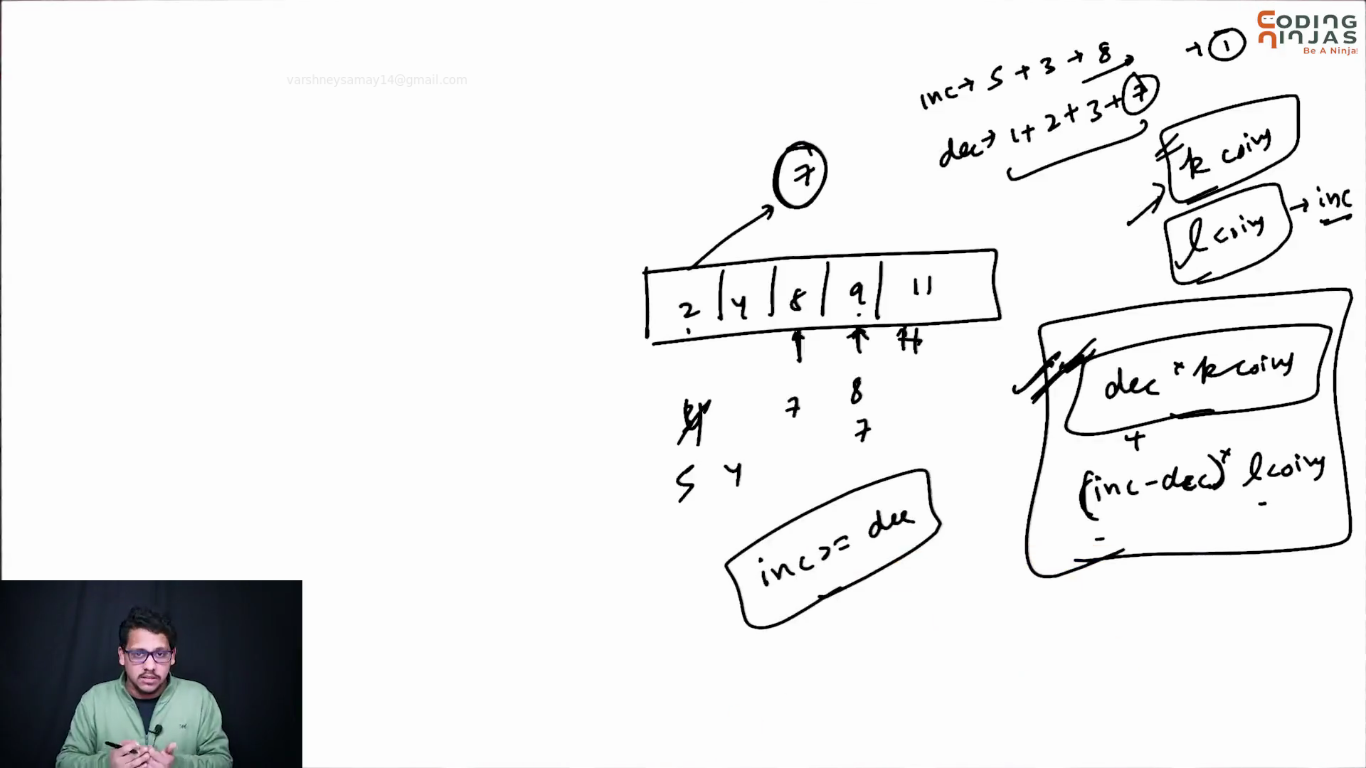 CODING
NINJAS
Be A Ninja!
varshneysamay14@gmail.com
inc → 5 + 3 → 8 → 1
dec → 1 + 2 + 3 + 7
7
k coins
l coins → inc
2 | 4 | 8 | 9 | 11
7 8
7
5 4
dec * k coins
+
(inc - dec) * l coins
inc >= dec